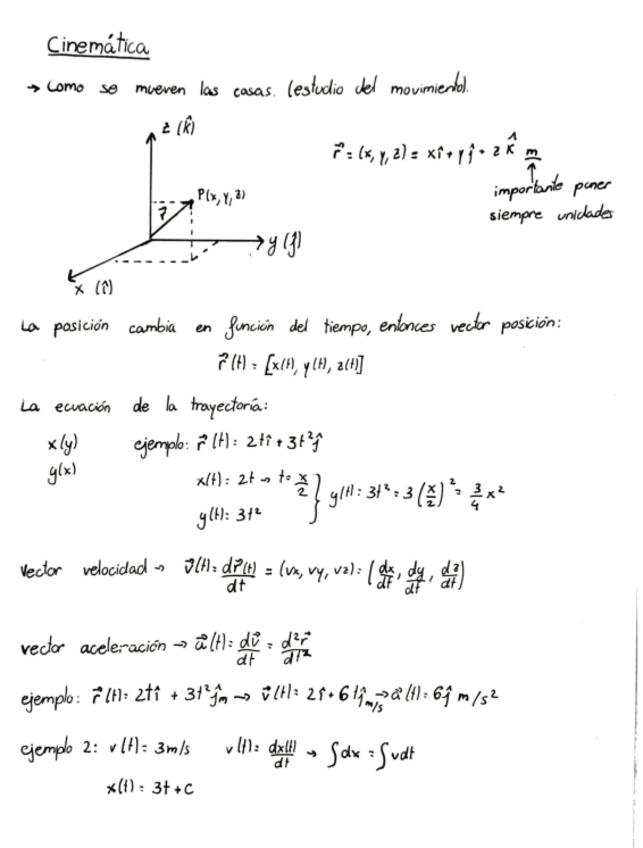 Cinemática
→ Como se mueven las cosas. (estudio del movimiento).
z (k̂)
r⃗ = (x, y, z) = xî + yĵ + z k̂ m
P(x, y, z)
r⃗
importante poner
siempre unidades
y (ĵ)
x (î)
La posición cambia en función del tiempo, entonces vector posición:
r⃗(t) = [x(t), y(t), z(t)]
La ecuación de la trayectoria:
x(y) ejemplo: r⃗(t) = 2tî + 3t²ĵ
y(x)
x(t) = 2t → t = x/2 } y(t) = 3t² = 3(x/2)² = 3/4 x²
y(t) = 3t²
Vector velocidad → v⃗(t) = dr⃗(t)/dt = (vx, vy, vz) = (dx/dt, dy/dt, dz/dt)
vector aceleración → a⃗(t) = dv⃗/dt = d²r⃗/dt²
ejemplo: r⃗(t) = 2tî + 3t²ĵ m → v⃗(t) = 2î + 6tĵ m/s → a⃗(t) = 6ĵ m/s²
ejemplo 2: v(t) = 3m/s v(t) = dx(t)/dt → ∫dx = ∫vdt
x(t) = 3t + C